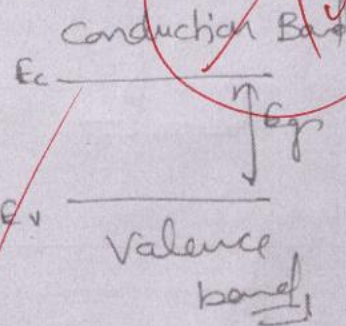 Conduction Band
Ec
Eg
Ev
Valence
band